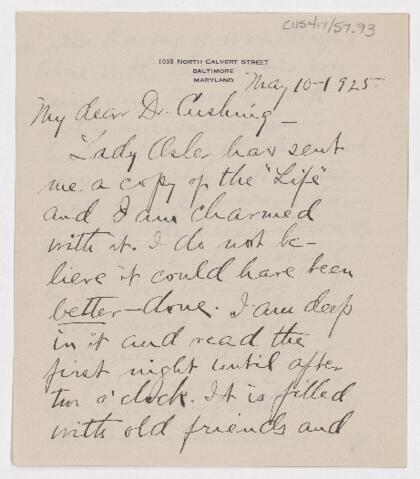 CUS417/57.93
1035 NORTH CALVERT STREET
BALTIMORE
MARYLAND
May 10-1925
My dear Dr. Cushing—
Lady Osler has sent
me a copy of the "Life"
and I am charmed
with it. I do not be-
lieve it could have been
better—done. I am deep
in it and read the
first night until after
two o'clock. It is filled
with old friends and